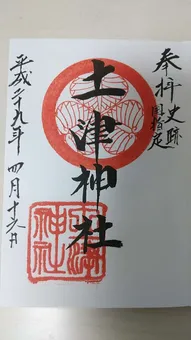 奉拝 史跡
国指定
土津神社
土津
神社
平成二十九年 四月十六日